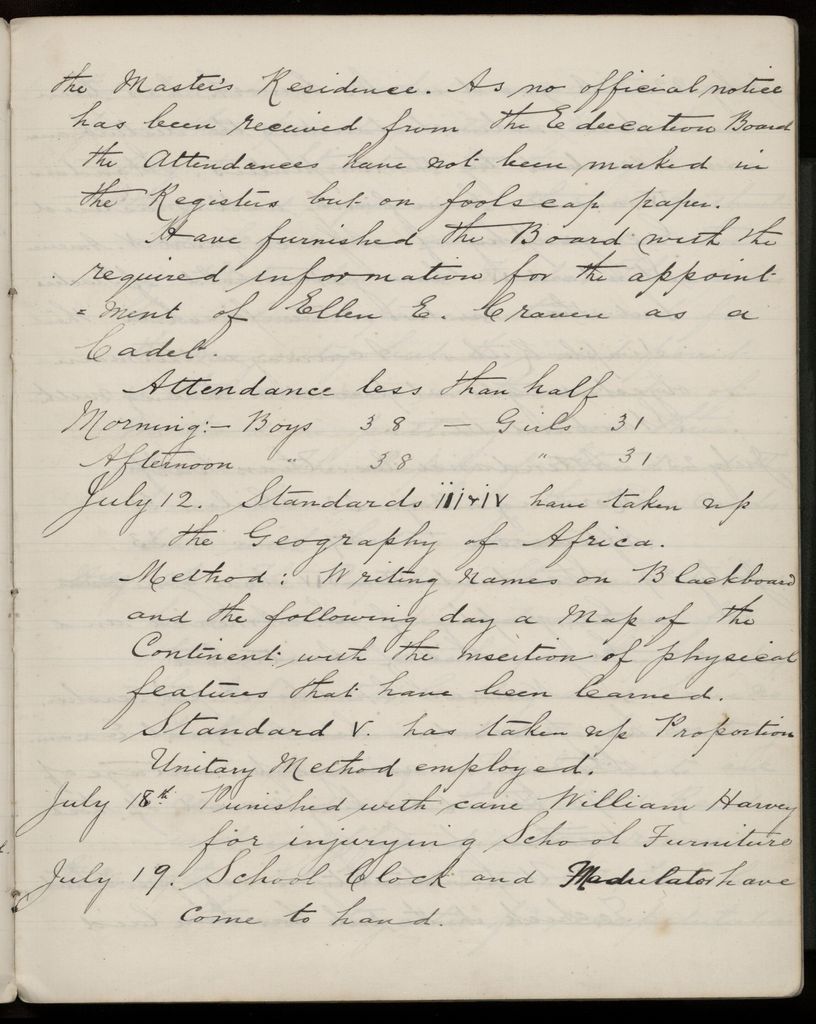 the Master's Residence. As no official notice
has been received from the Education Board
the Attendances have not been marked in
the Registers but on foolscap paper.
Have furnished the Board with the
required information for the appoint-
=ment of Ellen E. Craven as a
Cadet.
Attendance less than half
Morning:- Boys 38 - Girls 31
Afternoon " 38 " 31
July 12. Standards iii & iv have taken up
the Geography of Africa.
Method: Writing names on Blackboard
and the following day a Map of the
Continent with the insertion of physical
features that have been learned.
Standard V. has taken up Proportion
Unitary Method employed.
July 18th Punished with cane William Harvey
for injurying School Furniture
July 19. School Clock and Modulator have
come to hand.